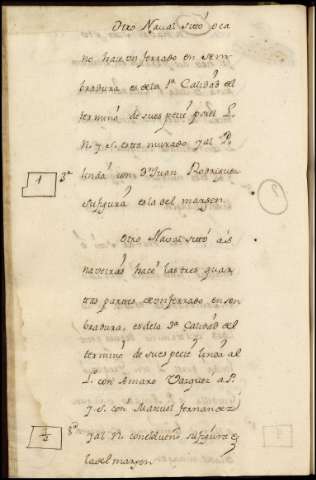 Otro Naval sittº de ca
no hace un ferrado en sem
bradura, es dela 1ª Calidad del
terminº de su espetiê por el L.
N. y S. esta murado y al P.
1 3ª linda con Dn Juan Rodriguez
su figura es la del margen
Otro Naval sittº ás
naveiras hace las tres quar
tas partes, de un ferrado en sem
bradura, es dela 3ª Calidad del
terminº de su espetiê linda al
L. con Amaro Vazquez a P.
y S. con Manuel fernandez
1/2 3ª y al N. con el dueño su figura es
la del margen